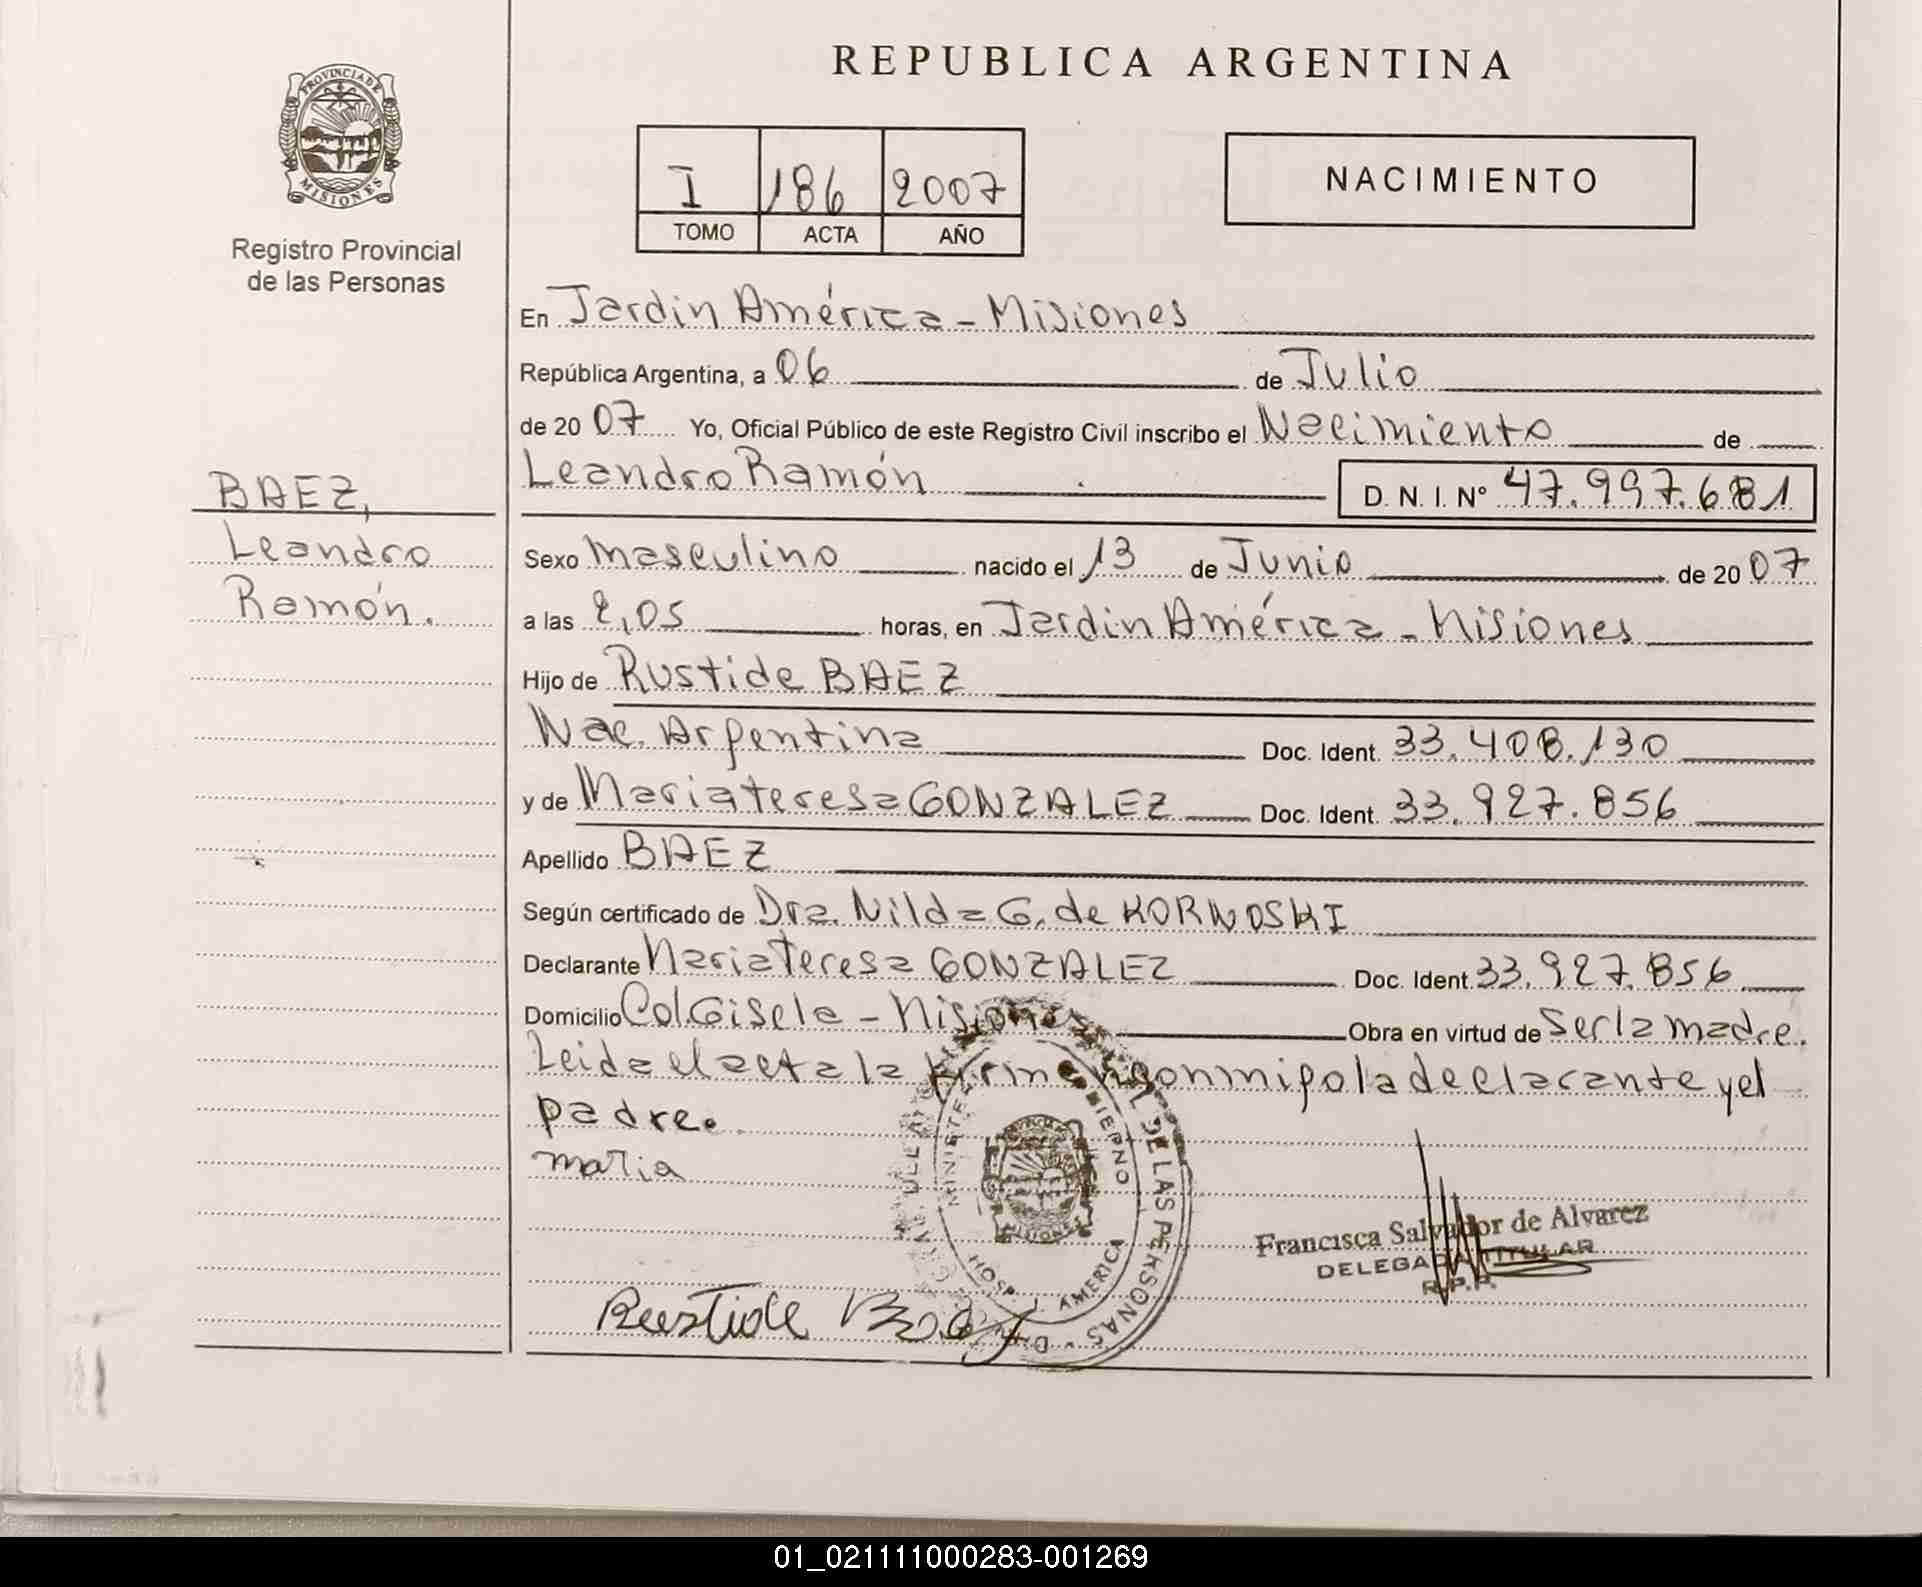 REPUBLICA ARGENTINA
PROVINCIA DE
MISIONES
Registro Provincial
de las Personas
I 186 2007
TOMO ACTA AÑO
NACIMIENTO
En Jardin América - Misiones
República Argentina, a 06 de Julio
de 20 07 Yo, Oficial Público de este Registro Civil inscribo el Nacimiento de
Leandro Ramón D. N. I. Nº 47.997.681
BAEZ,
Leandro
Ramón.
Sexo Masculino nacido el 13 de Junio de 20 07
a las 2,05 horas, en Jardin América - Misiones
Hijo de Rustide BAEZ
Nac. Argentina Doc. Ident. 33.408.130
y de Maria teresa GONZALEZ Doc. Ident. 33.927.856
Apellido BAEZ
Según certificado de Dra. Nilda G. de KORNOSKI
Declarante Maria Teresa GONZALEZ Doc. Ident. 33.927.856
Domicilio Col Gisela - Misiones Obra en virtud de Ser la madre.
Leida el acta la firman conmigo la declarante y el
padre.
maria
DE LAS PERSONAS
HOSP. AMERICA
Francisca Salvador de Alvarez
DELEGADA TITULAR
R.P.P.
Rustide Baez
01_021111000283-001269